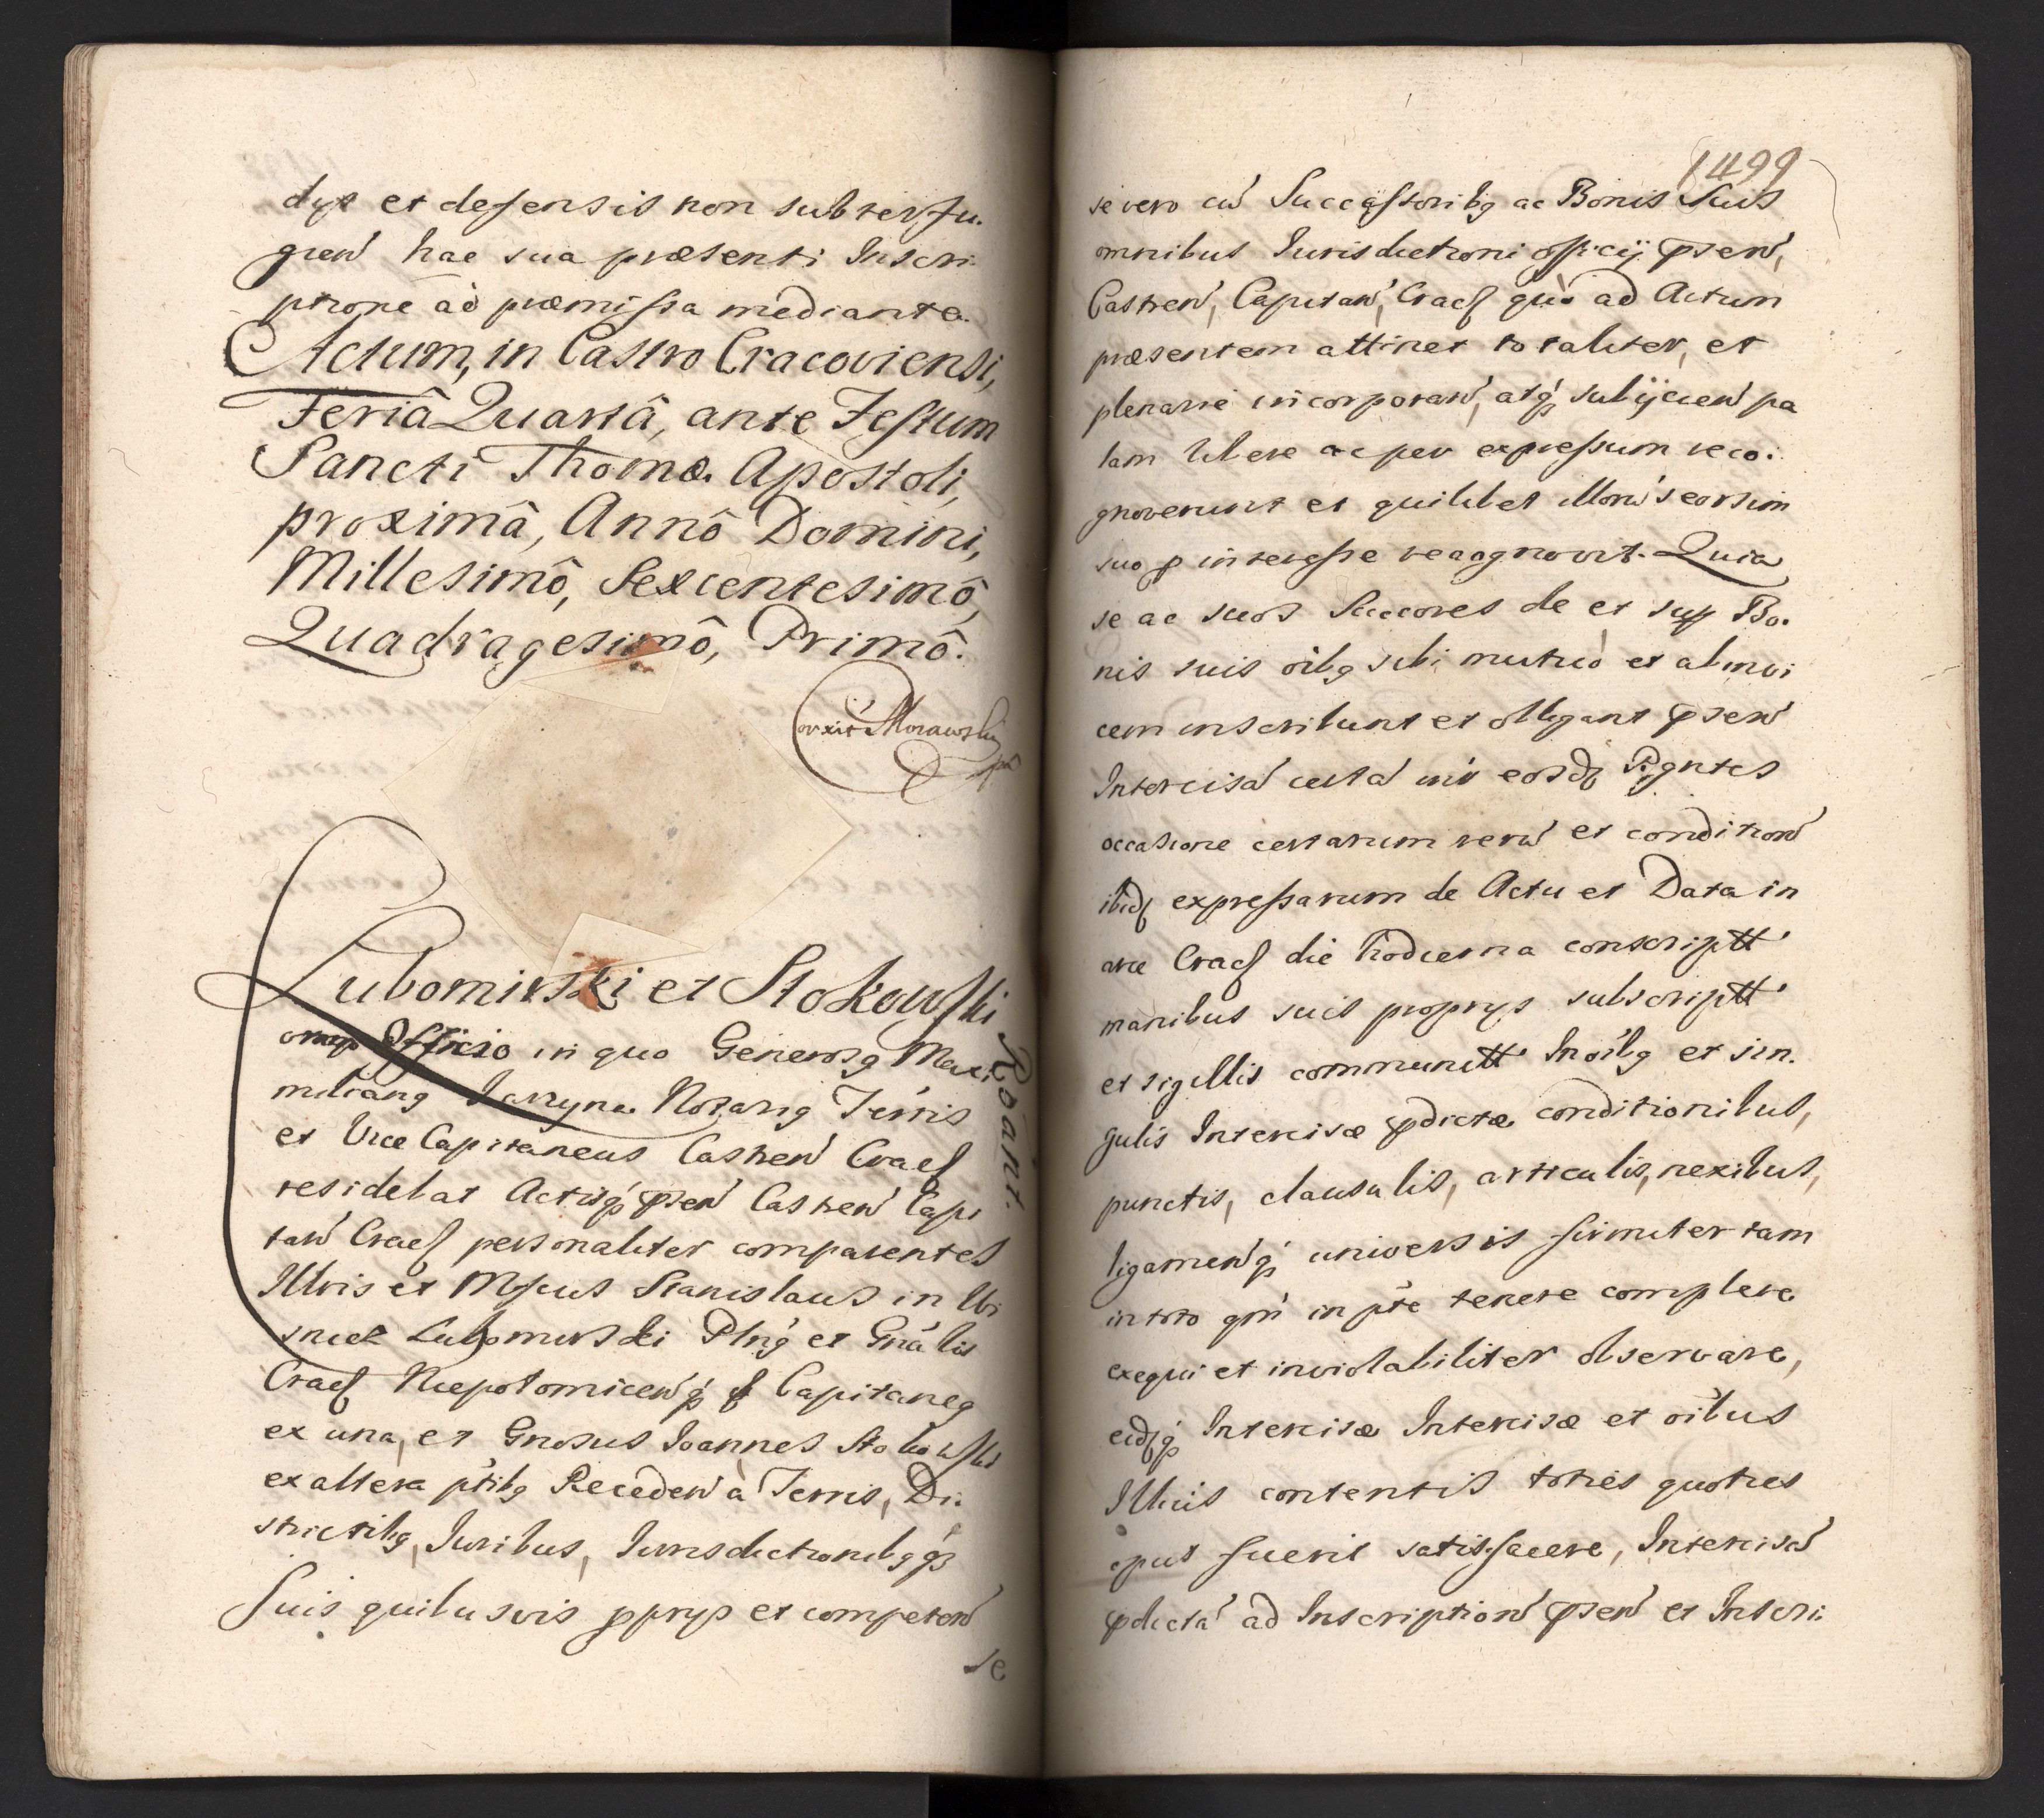 dijs et defensis non subterfu.
gien hac sua præsenti Inscri
ptione ad præmissa mediante.
Actum, in Castro Cracoviensi,
Feriâ Quartâ, ante Festum
Sancti Thomæ Apostoli,
proximâ, Annô Domini,
Millesimô, Sexcentesimô,
Quadragesimô, Primô.
Correxit Morawski
Lubomirski et Stokowski
Roant.
Officio in quo Generosq Maxi
milianq Jarzyna Notariq Terris
et Vice Capitaneus Castren Cracẜ
residebat Actisq psen Castren Capi
tan Cracẜ personaliter comparentes
Illris et Mgfcus Stanislaus in Wi
snicz Lubomirski Plnq et Gnalis
Cracẜ Niepolomicenq Capitaneq
ex una, et Gnosus Joannes Stokowski
ex altera ptibq Receden à Terris, Di
strictibq, Juribus, Jurisdictionibqq
Suis quibusvis pprijs et competen
se
1499
se vero cu Successoribq ac Bonis Suis
omnibus Jurisdictioni officij psen,
Castren, Capitan, Cracẜ quò ad Actum
præsentem attinet totaliter, et
plenarie incorporan, atq subijcien pa
lam libere ac per expressum reco:
gnoverunt et quilibet illoru seorsim
suo p interesse recognovit. Quia
se ac suos Succores de et sup Bo.
nis suis oibq sibi mutuò et abinvi
cem inscribunt et obligant psen
Intercisa certa intr eosd Rgntes
occasione certarum reru et condition
ibid expressarum de Actu et Data in
arce Cracẜ die hodierna conscriptt
manibus suis proprijs subscriptt
et sigillis communitt In oibq et sin.
gulis Intercisæ pdictæ conditionibus,
punctis, clausulis, articulis, nexibus,
ligamenq universis firmiter tam
in toto qm in pte tenere complere
exequi et inviolabiliter observare,
eidq Intercisæ Intercisæ et oibus
Illius contentis toties quoties
opus fuerit satisfacere, Intercisa
pdicta ad Inscription psen et Inscri: